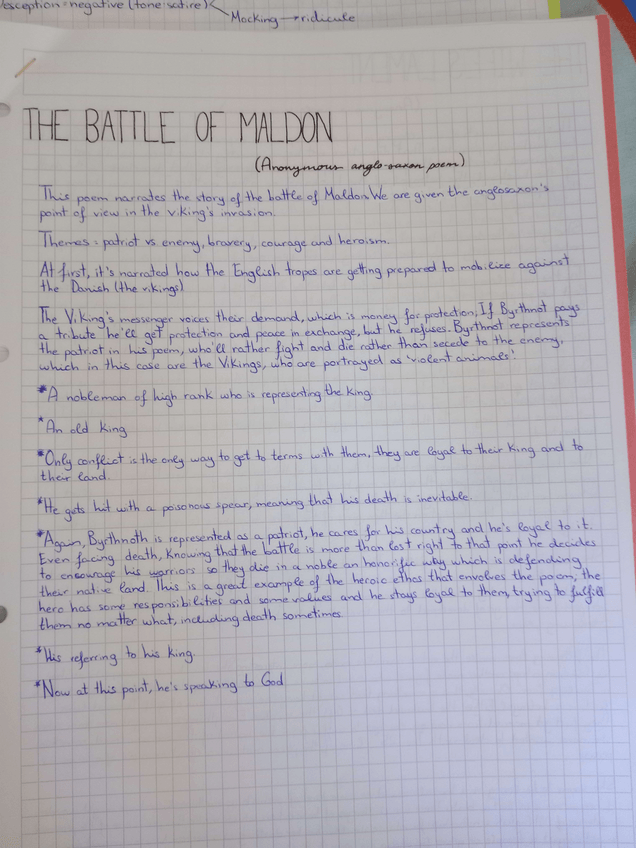 exception = negative (tone: satire)
Mocking → ridicule
THE BATTLE OF MALDON
(Anonymous anglo-saxon poem)
This poem narrates the story of the battle of Maldon. We are given the anglosaxon's
point of view in the viking's invasion.
Themes: patriot vs enemy, bravery, courage and heroism.
At first, it's narrated how the English tropes are getting prepared to mobilice against
the Danish (the vikings)
The Viking's messenger voices their demand, which is money for protection, If Byrthnot pays
a tribute he'll get protection and peace in exchange, but he refuses. Byrthnot represents
the patriot in his poem, who'll rather fight and die rather than secede to the enemy,
which in this case are the Vikings, who are portrayed as 'violent animals'.
*A nobleman of high rank who is representing the king.
*An old king
*Only conflict is the only way to get to terms with them, they are loyal to their king and to
their land.
*He gets hit with a poisonous spear, meaning that his death is inevitable.
*Again, Byrthnoth is represented as a patriot, he cares for his country and he's loyal to it.
Even facing death, knowing that the battle is more than lost right to that point he decides
to encourage his warriors so they die in a noble an honorific why which is defending
their native land. This is a great example of the heroic ethos that envolves the poem, the
hero has some responsibilities and some values and he stays loyal to them, trying to fulfill
them no matter what, including death sometimes.
*His referring to his king.
*Now at this point, he's speaking to God